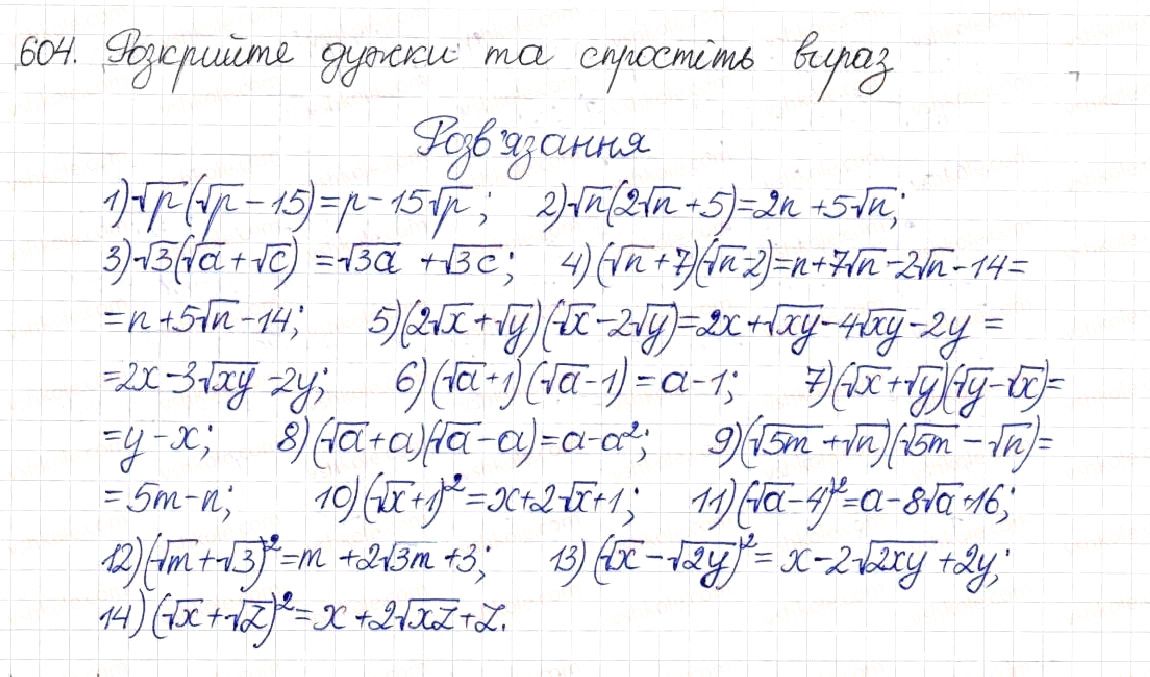 604. Розкрийте дужки та спростіть вираз
Розв'язання
1) √p(√p - 15) = p - 15√p; 2) √n(2√n + 5) = 2n + 5√n;
3) √3(√a + √c) = √3a + √3c; 4) (√n + 7)(√n - 2) = n + 7√n - 2√n - 14 =
= n + 5√n - 14; 5) (2√x + √y)(√x - 2√y) = 2x + √xy - 4√xy - 2y =
= 2x - 3√xy - 2y; 6) (√a + 1)(√a - 1) = a - 1; 7) (√x + √y)(√y - √x) =
= y - x; 8) (√a + a)(√a - a) = a - a²; 9) (√5m + √n)(√5m - √n) =
= 5m - n; 10) (√x + 1)² = x + 2√x + 1; 11) (√a - 4)² = a - 8√a + 16;
12) (√m + √3)² = m + 2√3m + 3; 13) (√x - √2y)² = x - 2√2xy + 2y;
14) (√x + √z)² = x + 2√xz + z.